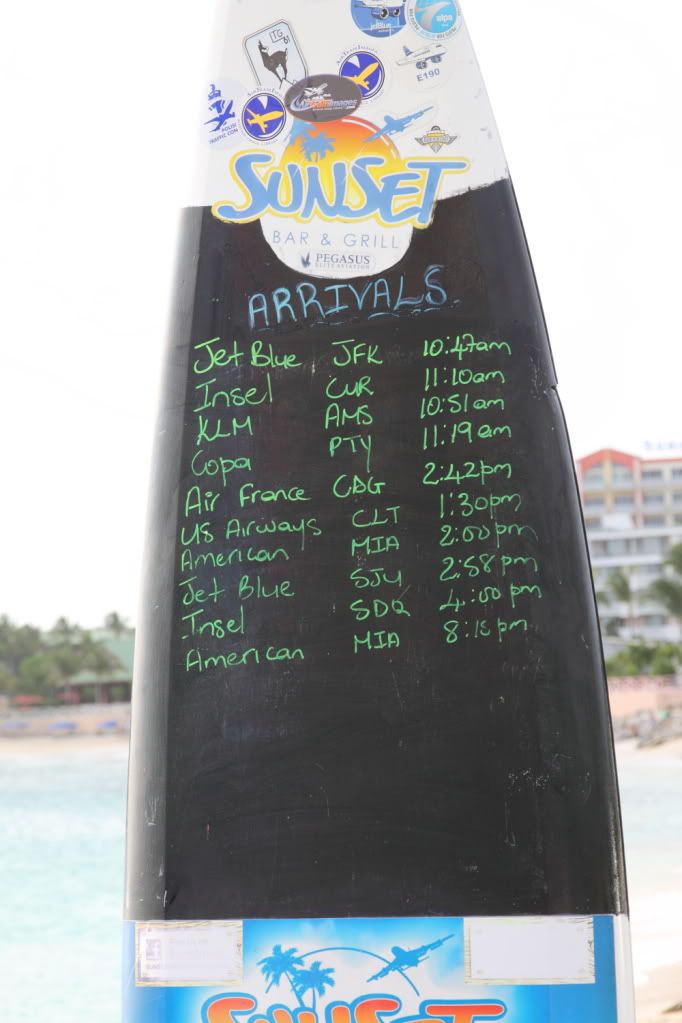 jetBlue
alpa
LTG
'01
E190
POLISI
TRAFFIC CON
SUNSET
BAR & GRILL
PEGASUS
ELITE AVIATION
ARRIVALS
Jet Blue JFK 10:47am
Insel CUR 11:10am
KLM AMS 10:51am
Copa PTY 11:19am
Air France CDG 2:42pm
US Airways CLT 1:30pm
American MIA 2:00pm
Jet Blue SJU 2:58pm
Insel SDQ 4:00pm
American MIA 8:15pm
SUNSET